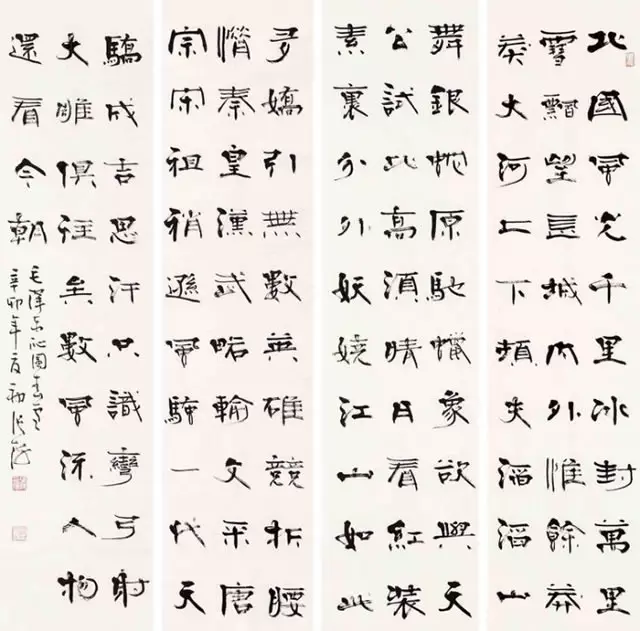 北國風光千里冰封萬里
雪飄望長城內外惟餘莽
莽大河上下頓失滔滔山
舞銀蛇原馳蠟象欲與天
公試比高須晴日看紅裝
素裹分外妖嬈江山如此
多嬌引無數英雄競折腰
惜秦皇漢武略輸文采唐
宗宋祖稍遜風騷一代天
驕成吉思汗只識彎弓射
大雕俱往矣數風流人物
還看今朝
毛澤東沁園春雪
辛卯年夏初張